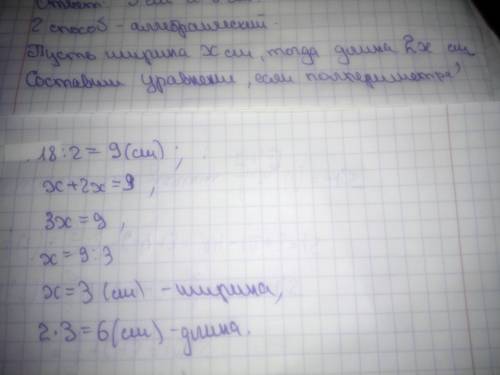 Ответ: 3 см и 6 см.
2 способ - алгебраический.
Пусть ширина x см, тогда длина 2x см
Составим уравнение, если полпериметра
18:2=9(см);
x+2x=9,
3x=9,
x=9:3
x=3(см) - ширина,
2·3=6(см)-длина.